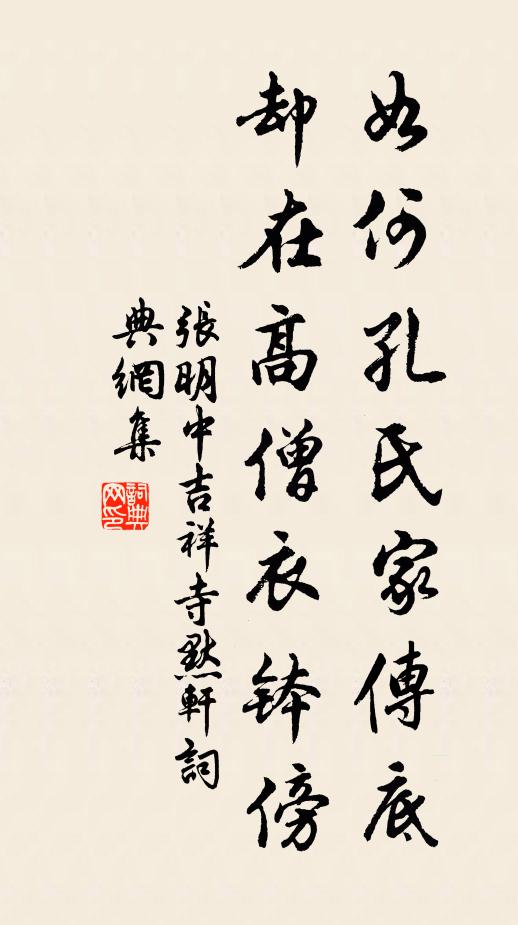 如何孔氏家傳底
却在高僧衣鉢傍
張明中吉祥寺默軒詞
典網集
詞典網印